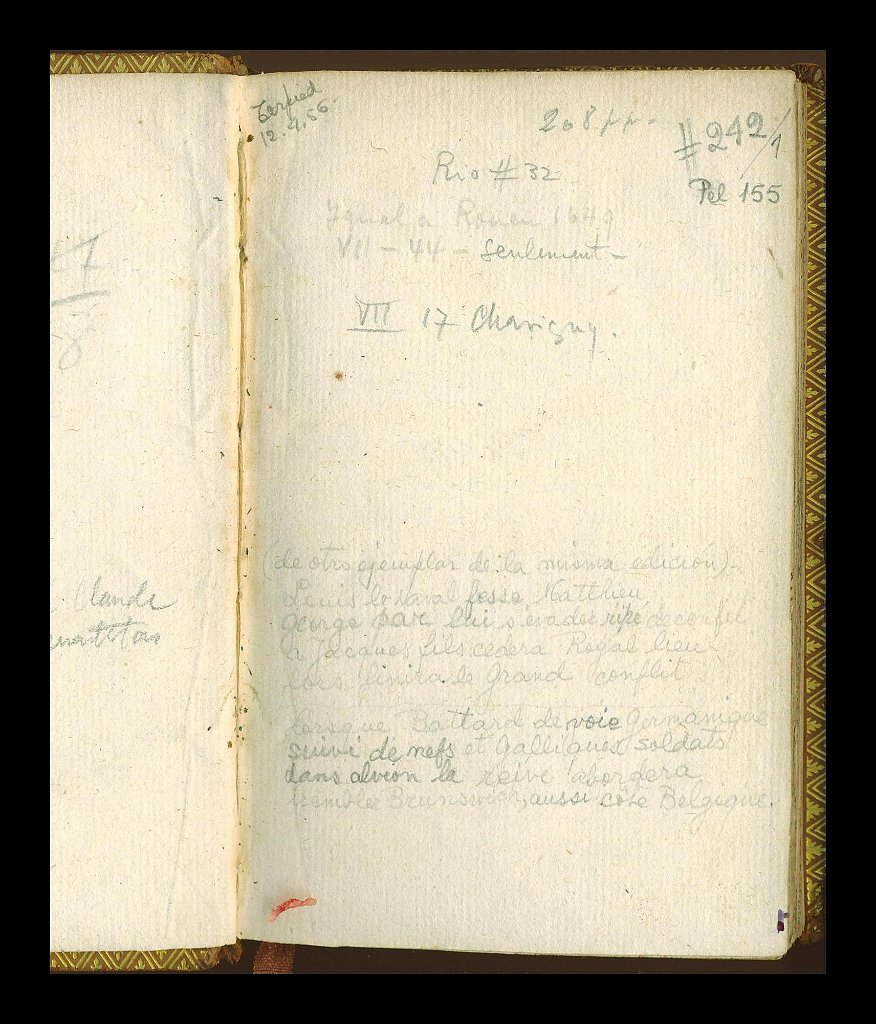 12.4.56.
208 pp.
#242/1
Rio #32
Pel 155
Igual a Rouen 1649
VII - 44 - seulement -
VII 17 Chavigny.
Claude
(de otro ejemplar de la misma edición) -
Louis le Naval fesse Matthieu
George par lui s'évader deconfit
a Jacques fils cedera Royal lieu
lors finira le Grand conflit
lorsque Battard de voie Germanique
suivi de nefs et Galliques soldats
dans alvion la reive abordera
trembler Brunswich, aussi côte Belgique.